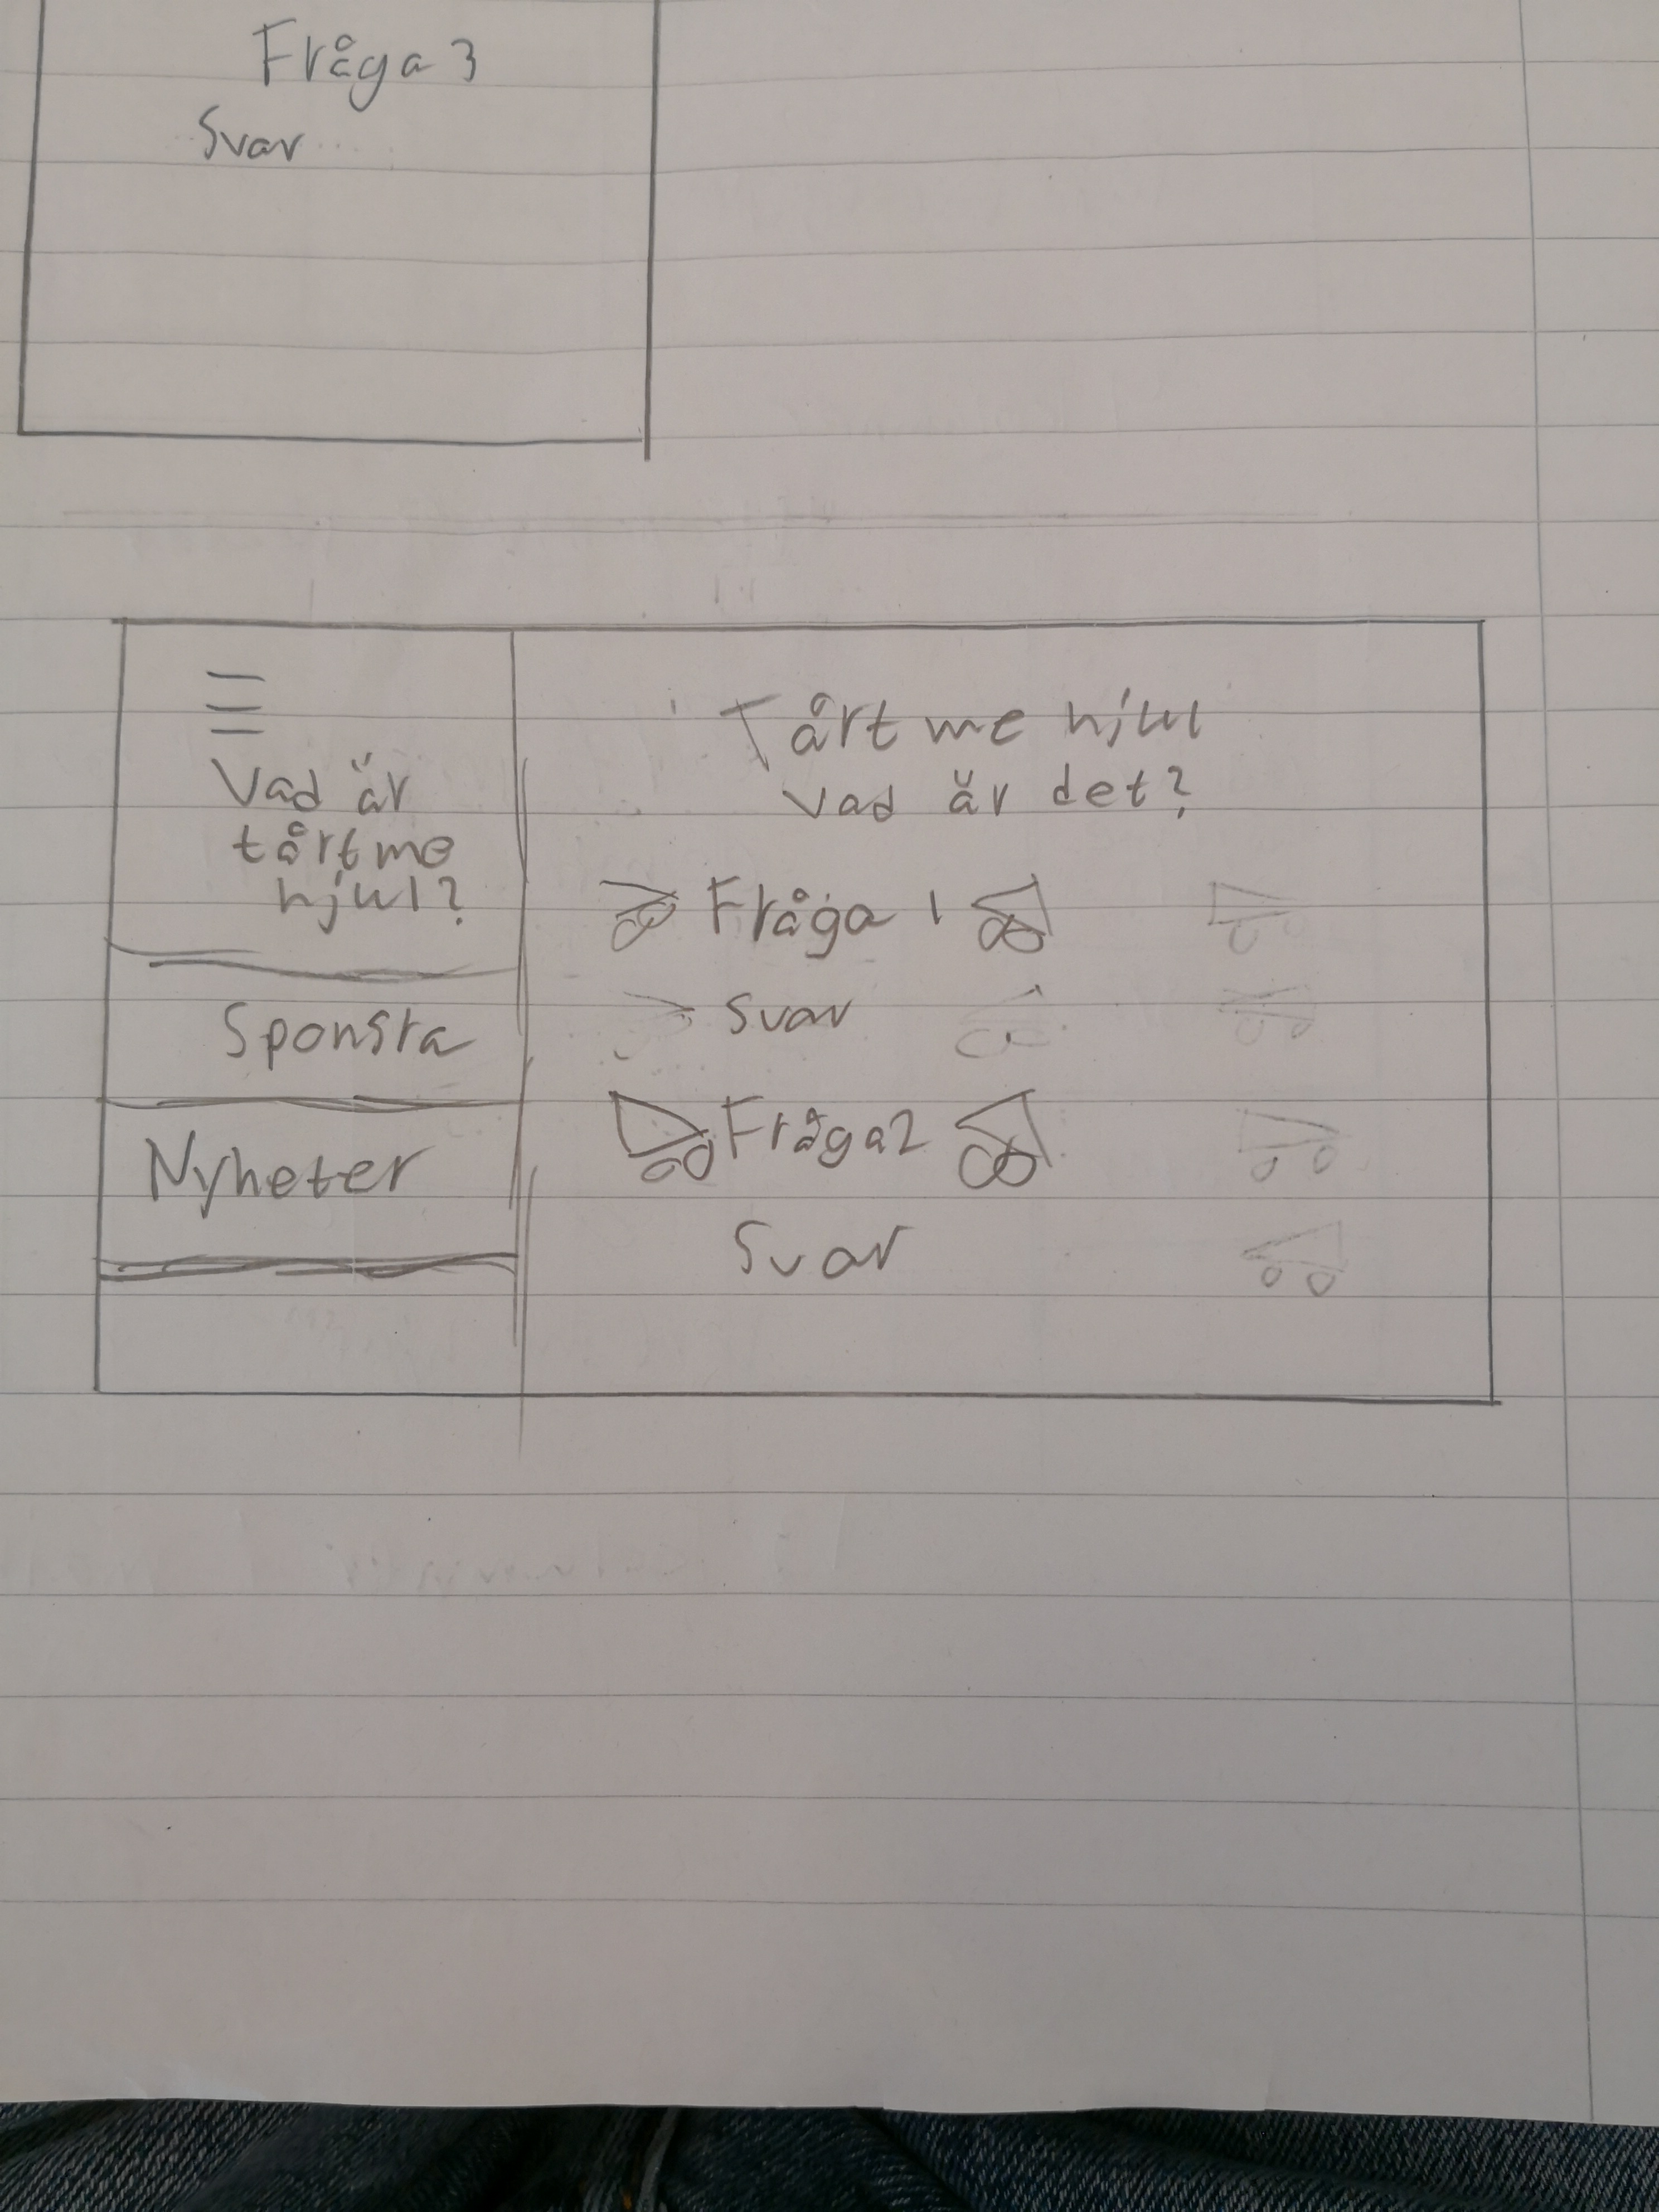 Fråga 3
Svar
Vad är
tårtme
hjul?
Sponsra
Nyheter
Tårt me hjul
vad är det?
Fråga 1
Svar
Fråga2
Svar